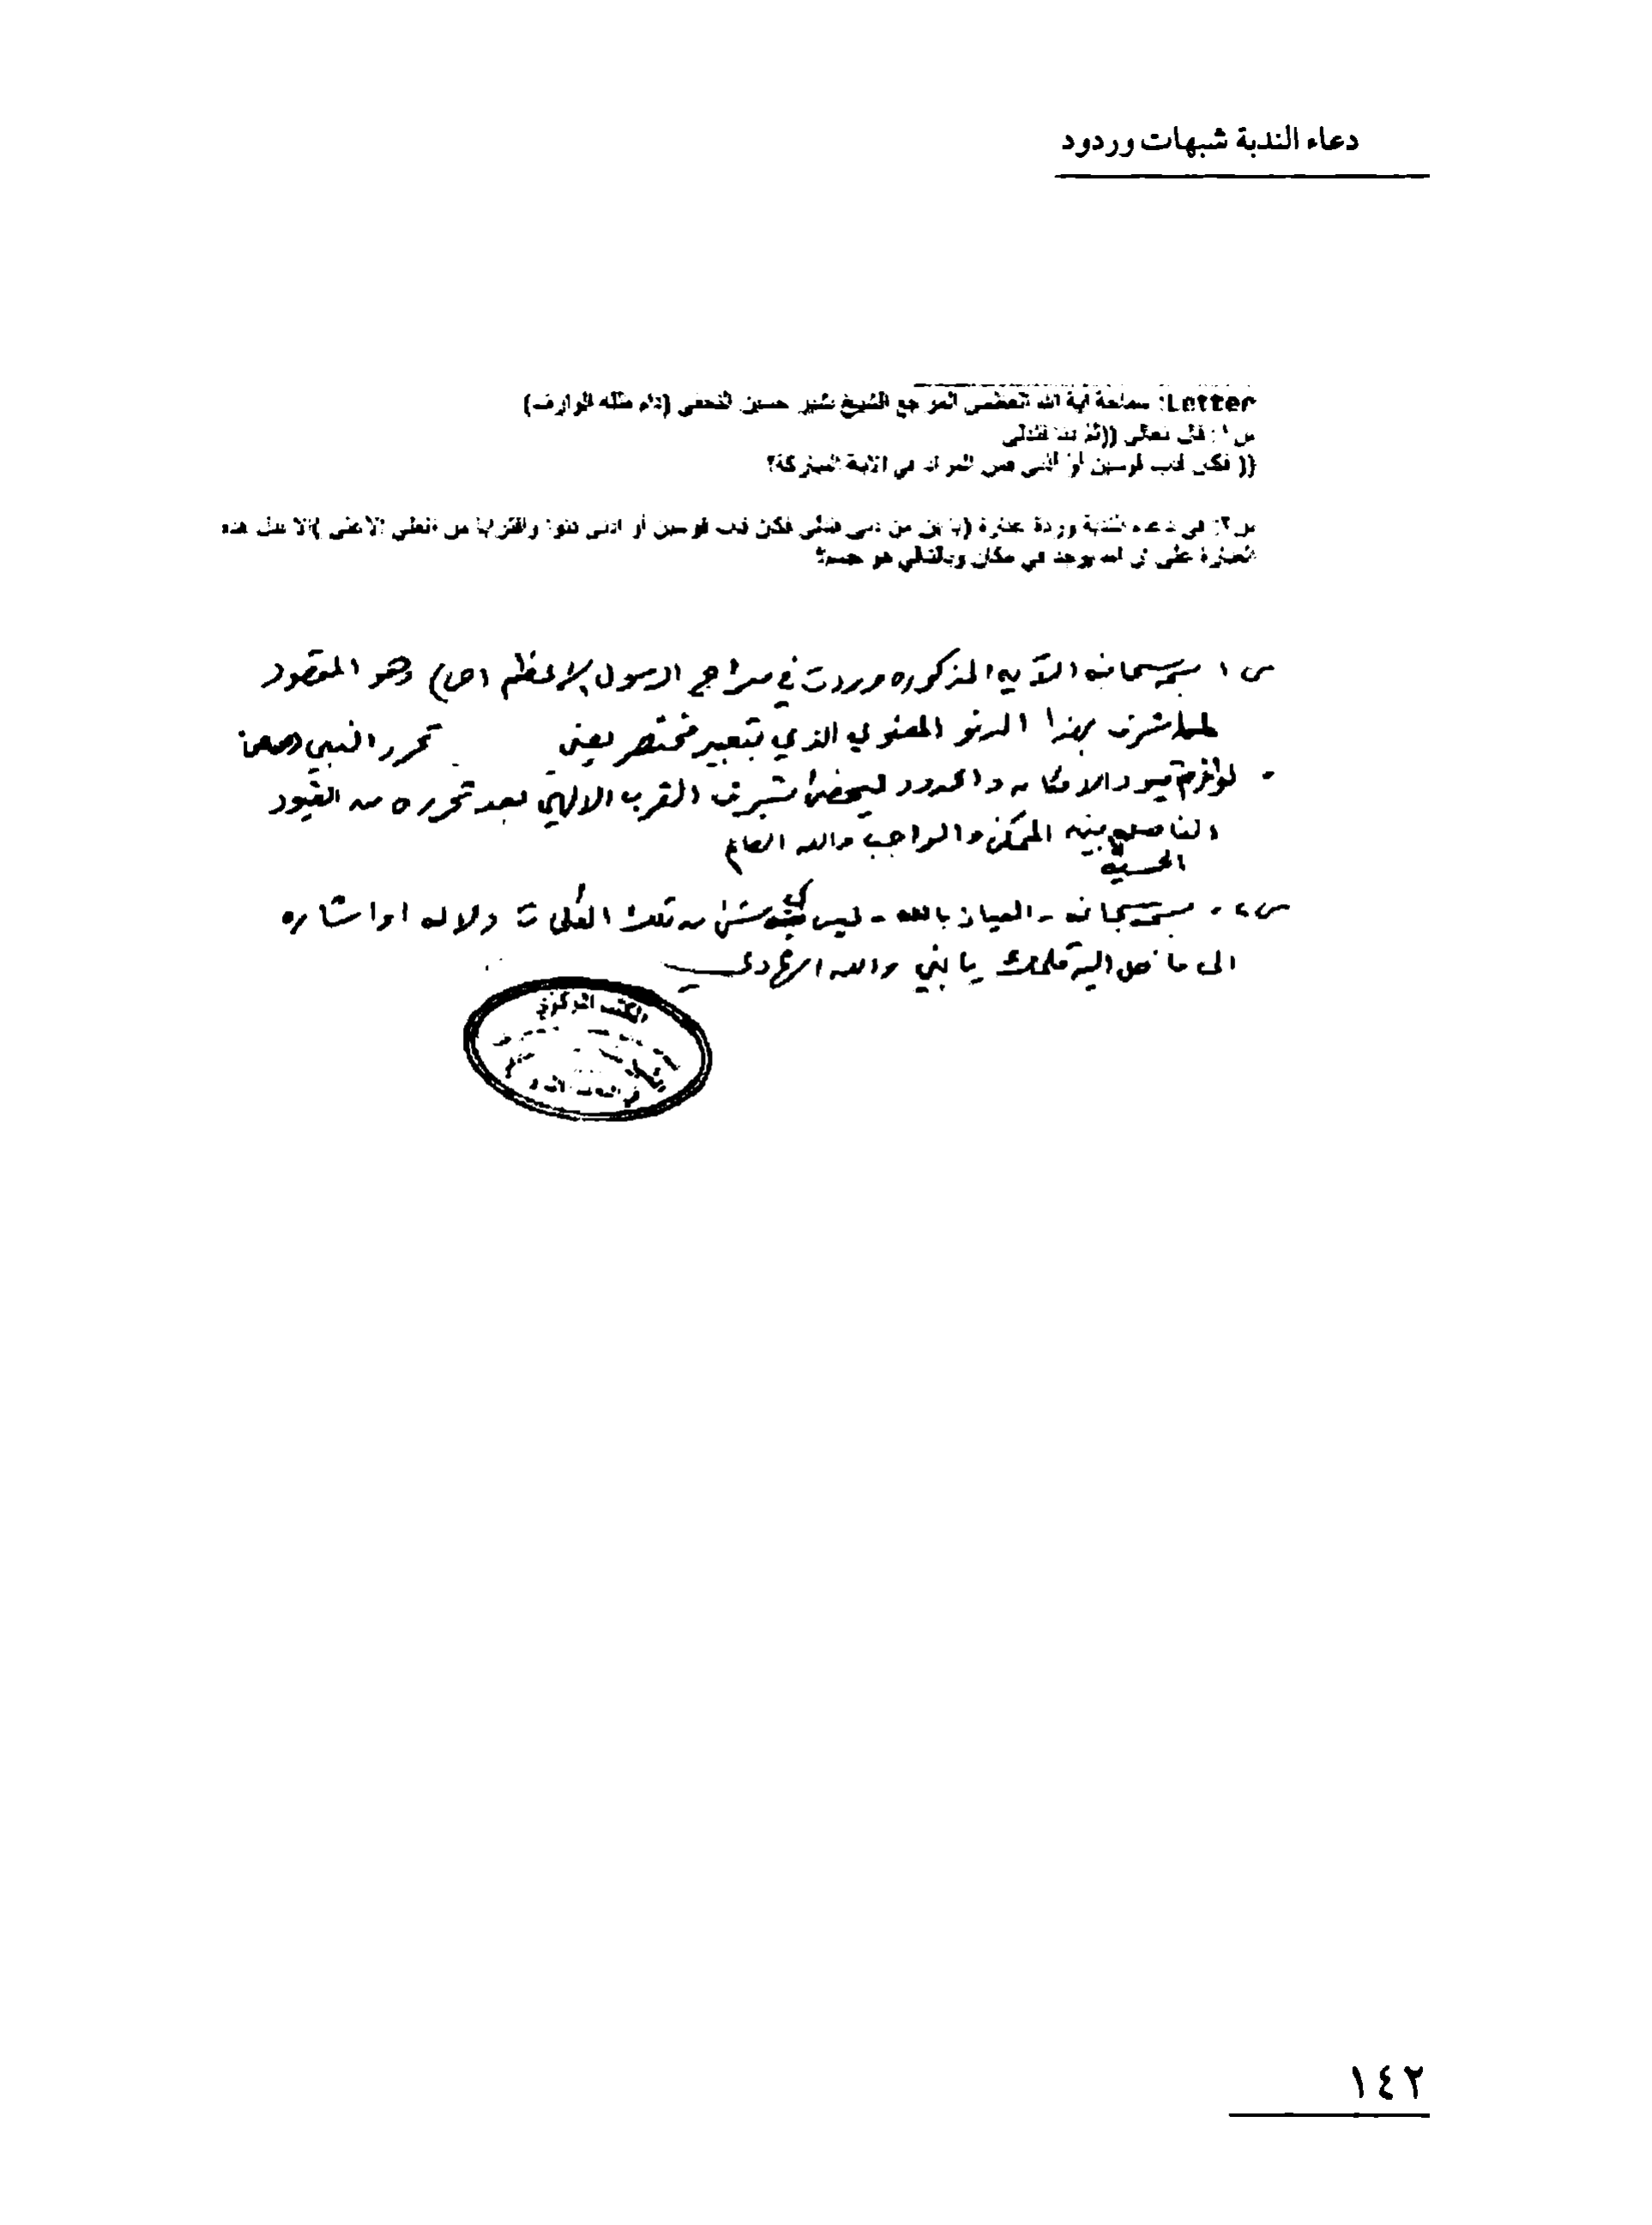 دعاء الندبة شبهات وردود
Letter: سماحة اية الله العظمى المرجع الشيخ بشير حسين النجفي (دام ظله الوارف)
س١: قال تعالى ((ثم دنا فتدلى
(( فكان قاب قوسين أو أدنى فمن المراد في الآية المباركة؟
س٢: في دعاء الندبة وردة عبارة (يا بن من دنى فتدلى فكان قاب قوسين أو ادنى دنوا واقترابا من العلي الاعلى )الا تدل هذه
العبارة على ان الله يوجد في مكان وبالتالي هو جسم؟
س١ بسمه سبحانه الآيه المذكوره وردت في معراج الرسول الاعظم (ص) وهو المقصود
بهذا الدنو المعنوي الذي بتعبير مختصر يعني تحرر النبي
قيود الامكان والحدود تشرف القرب الالهي بعد تحرره من القيود
بين الممكن والواجب والله العالم
س٢ بسمه سبحانه - العياذ بالله - ليس في شئ من تلك الكلمات دلاله او اشاره
الى ما اليه يا بني والله الهادي
المكتب المركزي
١٤٢